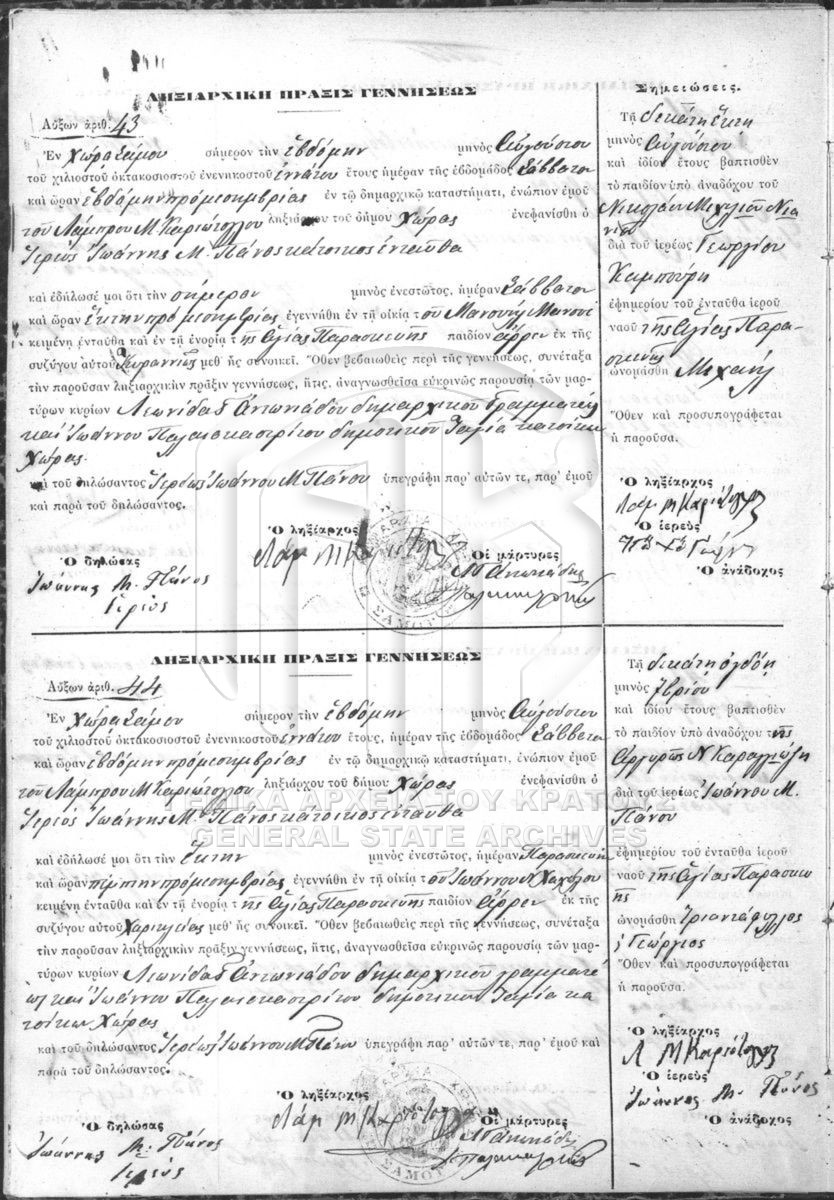 ΛΗΞΙΑΡΧΙΚΗ ΠΡΑΞΙΣ ΓΕΝΝΗΣΕΩΣ
Αὔξων ἀριθ. 43
Ἐν Χώρα Σάμου σήμερον τὴν ἑβδόμην μηνὸς Αὐγούστου
τοῦ χιλιοστοῦ ὀκτακοσιοστοῦ ἐνενηκοστοῦ ἐννάτου ἔτους ἡμέραν τῆς ἑβδομάδος Σάββατον
καὶ ὥραν ἑβδόμην πρό μεσημβρίας ἐν τῷ δημαρχικῷ καταστήματι, ἐνώπιον ἐμοῦ
τοῦ Λάμπρου Μ. Καριώτογλου ληξιάρχου τοῦ δήμου Χώρας ἐνεφανίσθη ὁ
Ἱερεύς Ἰωάννης Μ. Πάνος κάτοικος ἐνταῦθα
καὶ ἐδήλωσέ μοι ὅτι τὴν σήμερον μηνὸς ἐνεστῶτος, ἡμέραν Σάββατον
καὶ ὥραν ἕκτην πρό μεσημβρίας ἐγεννήθη ἐν τῇ οἰκίᾳ τοῦ Μανουὴλ
κειμένῃ ἐνταῦθα καὶ ἐν τῇ ἐνορίᾳ τῆς Ἁγίας Παρασκευῆς παιδίον ἄρρεν ἐκ τῆς
συζύγου αὐτοῦ Κυραννῆς μεθ' ἧς συνοικεῖ. Ὅθεν βεβαιωθεὶς περὶ τῆς γεννήσεως, συνέταξα
τὴν παροῦσαν ληξιαρχικὴν πρᾶξιν γεννήσεως, ἥτις, ἀναγνωσθεῖσα εὐκρινῶς παρουσίᾳ τῶν μαρ-
τύρων κυρίων Λεωνίδα Σ Ἀντωνιάδου δημαρχικοῦ Γραμματέως
καὶ Ἰωάννου Παλαιοκαστρίτου δημοτικοῦ Ταμία κατοίκων
Χώρας
καὶ τοῦ δηλώσαντος Ἱερέως Ἰωάννου Μ Πάνου ὑπεγράφη παρ' αὐτῶν τε, παρ' ἐμοῦ
καὶ παρὰ τοῦ δηλώσαντος.
Ὁ ληξίαρχος
Οἱ μάρτυρες
Ὁ δηλώσας
Ἰωάννης Μ. Πάνος
Ἱερεύς
Σημειώσεις.
Τῇ δεκάτῃ ἕκτῃ
μηνὸς Αὐγούστου
καὶ ἰδίου ἔτους βαπτισθὲν
τὸ παιδίον ὑπὸ ἀναδόχου τοῦ
Νικολάου
διὰ τοῦ ἱερέως Γεωργίου
Καμπούρη
ἐφημερίου τοῦ ἐνταῦθα ἱεροῦ
ναοῦ τῆς Ἁγίας Παρα-
σκευῆς
ὠνομάσθη Μιχαήλ
Ὅθεν καὶ προσυπογράφεται
ἡ παροῦσα.
Ὁ ληξίαρχος
Ὁ ἱερεὺς
Ὁ ἀνάδοχος
ΛΗΞΙΑΡΧΙΚΗ ΠΡΑΞΙΣ ΓΕΝΝΗΣΕΩΣ
Αὔξων ἀριθ. 44
Ἐν Χώρα Σάμου σήμερον τὴν ἑβδόμην μηνὸς Αὐγούστου
τοῦ χιλιοστοῦ ὀκτακοσιοστοῦ ἐνενηκοστοῦ ἐννάτου ἔτους, ἡμέραν τῆς ἑβδομάδος Σάββατον
καὶ ὥραν ἑβδόμην πρό μεσημβρίας ἐν τῷ δημαρχικῷ καταστήματι, ἐνώπιον ἐμοῦ
τοῦ Λάμπρου Μ Καριώτογλου ληξιάρχου τοῦ δήμου Χώρας ἐνεφανίσθη ὁ
Ἱερεύς Ἰωάννης Μ. Πάνος κάτοικος ἐνταῦθα
ΓΕΝΙΚΑ ΑΡΧΕΙΑ ΤΟΥ ΚΡΑΤΟΥΣ
GENERAL STATE ARCHIVES
καὶ ἐδήλωσέ μοι ὅτι τὴν ἕκτην μηνὸς ἐνεστῶτος, ἡμέραν Παρασκευήν
καὶ ὥραν πέμπτην πρό μεσημβρίας ἐγεννήθη ἐν τῇ οἰκίᾳ τοῦ Ἰωάννου Ν
κειμένῃ ἐνταῦθα καὶ ἐν τῇ ἐνορίᾳ τῆς Ἁγίας Παρασκευῆς παιδίον ἄρρεν ἐκ τῆς
συζύγου αὐτοῦ Χαρικλείας μεθ' ἧς συνοικεῖ. Ὅθεν βεβαιωθεὶς περὶ τῆς γεννήσεως, συνέταξα
τὴν παροῦσαν ληξιαρχικὴν πρᾶξιν γεννήσεως, ἥτις, ἀναγνωσθεῖσα εὐκρινῶς παρουσίᾳ τῶν μαρ-
τύρων κυρίων Λεωνίδα Σ Ἀντωνιάδου δημαρχικοῦ γραμματέ
ως καὶ Ἰωάννου Παλαιοκαστρίτου δημοτικοῦ Ταμία κα
τοίκων Χώρας
καὶ τοῦ δηλώσαντος Ἱερέως Ἰωάννου Μ Πάνου ὑπεγράφη παρ' αὐτῶν τε, παρ' ἐμοῦ καὶ
παρὰ τοῦ δηλώσαντος.
Ὁ ληξίαρχος
Οἱ μάρτυρες
Ὁ δηλώσας
Ἰωάννης Μ. Πάνος
Ἱερεύς
Τῇ δεκάτῃ ὀγδόῃ
μηνὸς 7βρίου
καὶ ἰδίου ἔτους βαπτισθὲν
τὸ παιδίον ὑπὸ ἀναδόχου τῆς
Ἀργυρῆς Ν Καραγλιώζη
διὰ τοῦ ἱερέως Ἰωάννου Μ.
Πάνου
ἐφημερίου τοῦ ἐνταῦθα ἱεροῦ
ναοῦ τῆς Ἁγίας Παρασκευ
ῆς
ὠνομάσθη Τριαντάφυλλος
ἢ Γεώργιος
Ὅθεν καὶ προσυπογράφεται
ἡ παροῦσα.
Ὁ ληξίαρχος
Ὁ ἱερεὺς
Ἰωάννης Μ. Πάνος
Ὁ ἀνάδοχος